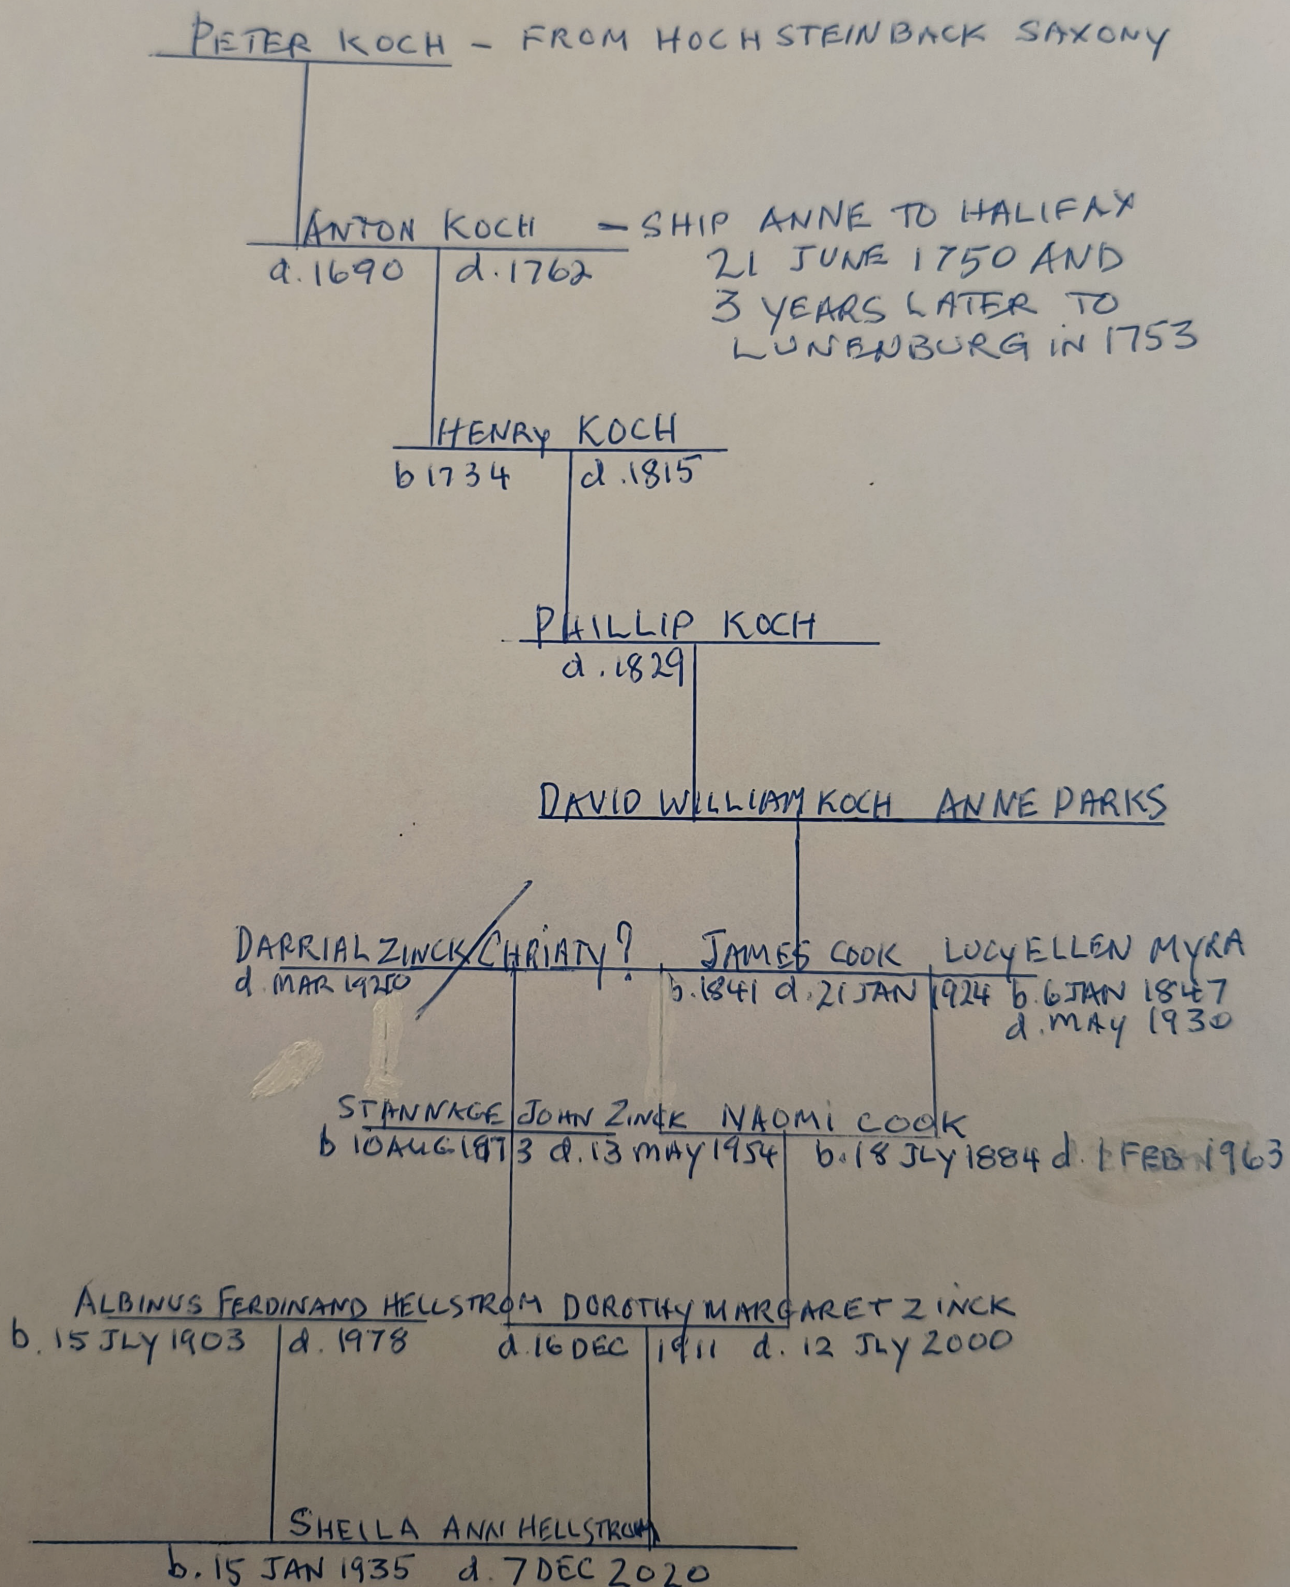 PETER KOCH - FROM HOCHSTEINBACK SAXONY
ANTON KOCH - SHIP ANNE TO HALIFAX
d.1690 d.1762 21 JUNE 1750 AND
3 YEARS LATER TO
LUNENBURG IN 1753
HENRY KOCH
b 1734 d.1815
PHILLIP KOCH
d.1829
DAVID WILLIAM KOCH ANNE PARKS
DARRIAL ZINCK/CHRIATY? JAMES COOK LUCY ELLEN MYRA
d. MAR b.1841 d.21 JAN 1924 b.6 JAN 1847
d.MAY 1930
STANNAGE JOHN ZINCK NAOMI COOK
b 10 AUG 1873 d.13 MAY 1954 b.18 JLY 1884 d.1 FEB 1963
ALBINUS FERDINAND HELLSTROM DOROTHY MARGARET ZINCK
b.15 JLY 1903 d.1978 d.16 DEC 1911 d.12 JLY 2000
SHEILA ANN HELLSTROM
b.15 JAN 1935 d.7 DEC 2020